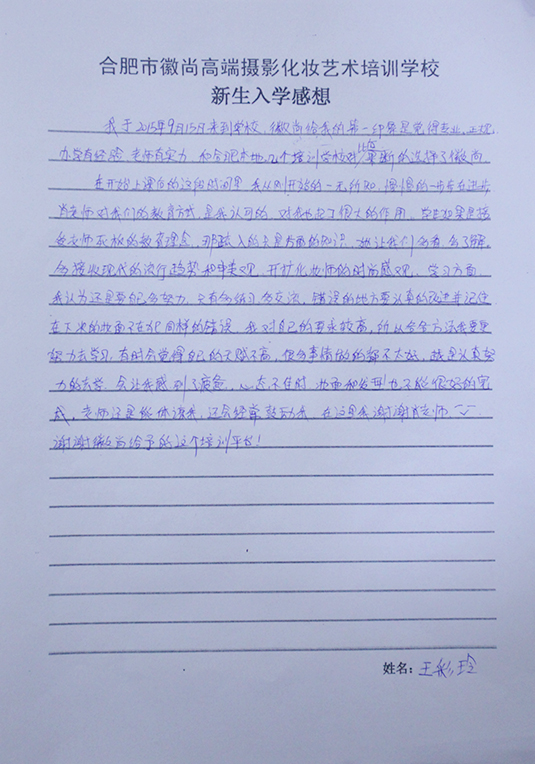 合肥市徽尚高端摄影化妆艺术培训学校
新生入学感想
我于2015年9月15日来到学校，徽尚给我的第一印象是觉得专业，正规，
办学有经验，老师有实力，和合肥本地几个培训学校对比后果断的选择了徽尚
在开始上课的这段时间里，我从刚开始的一无所知，慢慢的一步步在进步
肖老师对我们的教育方式是我认可的，对我也起了很大的作用，学生如果是接
受老师死板的教育理念，那融入的只是书面的知识，她让我们多看，多了解，
多接收现代的流行趋势和审美观，开扩化妆师的时尚感观，学习方面
我认为还是要自己多努力，只有多练习，多交流，错误的地方要认真的改进并记住
在下次的妆面不在犯同样的错误，我对自己的要求较高，所以会全方活我要更
努力去学习，有时会觉得自己的天赋不高，很多事情做的都不太好，越是认真努
力的去学，会让我感到了疲惫，心态不佳时，妆面和发型也不能很好的完
成，老师还是能体谅我，还会经常鼓励我，在这里我谢谢肖老师
谢谢徽尚给予的这个培训平台！
姓名：王彩玲